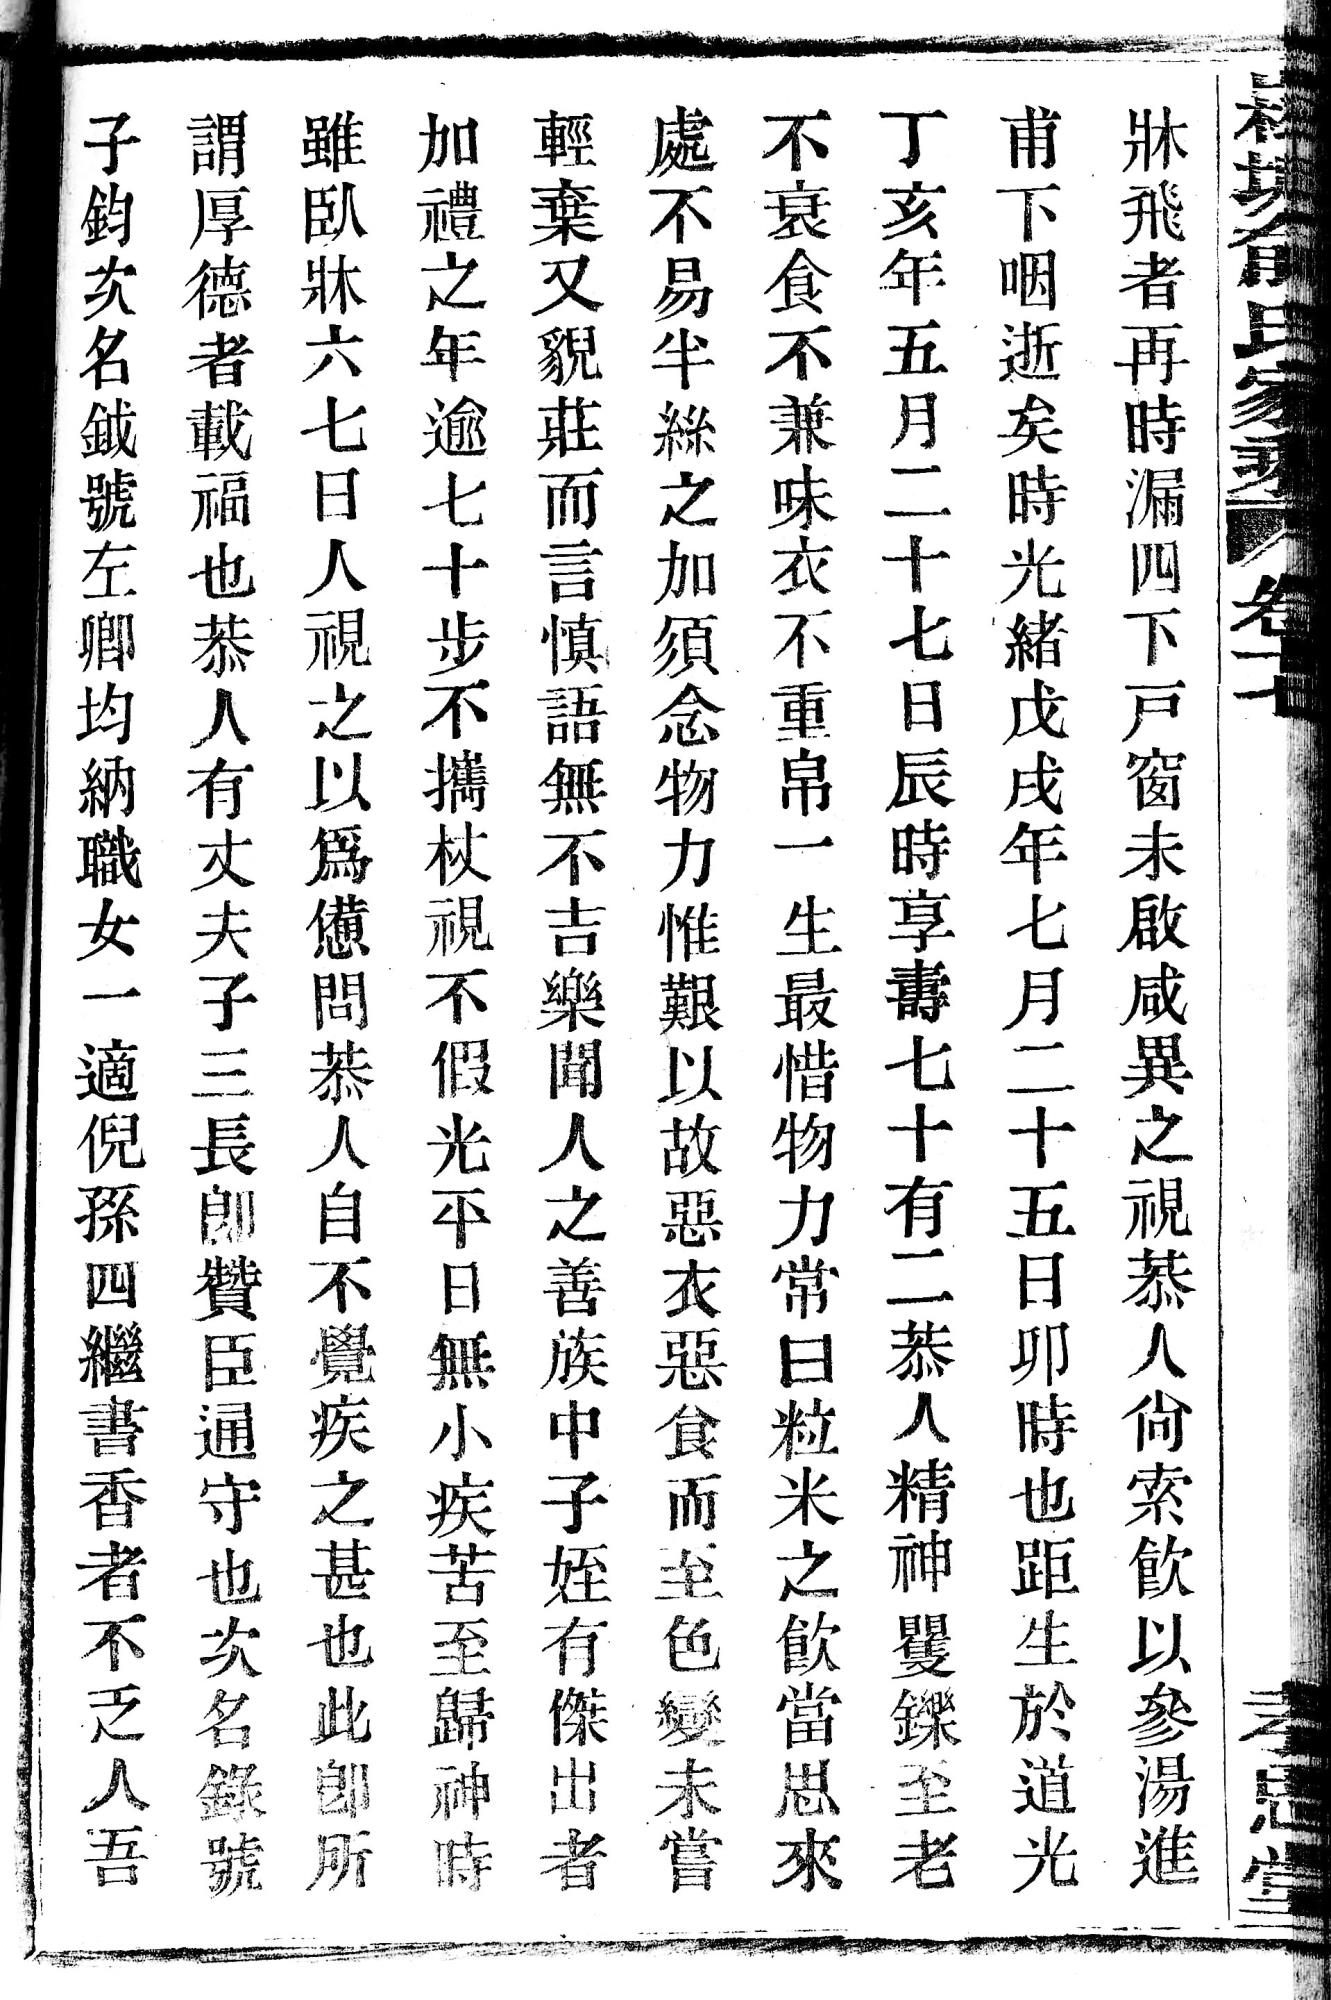 牀飛者再時漏四下戸窗未啟咸異之視恭人尙索飮以參湯進
甫下咽逝矣時光緒戊戌年七月二十五日卯時也距生於道光
丁亥年五月二十七日辰時享壽七十有二恭人精神矍鑠至老
不衰食不兼味衣不重帛一生最惜物力常曰粒米之飮當思來
處不易半絲之加須念物力惟艱以故惡衣惡食而至色變未嘗
輕棄又貌莊而言慎語無不吉樂聞人之善族中子姪有傑出者
加禮之年逾七十步不攜杖視不假光平日無小疾苦至歸神時
雖臥牀六七日人視之以爲憊問恭人自不覺疾之甚也此卽所
謂厚德者載福也恭人有丈夫子三長卽贊臣通守也次名錄號
子鈞次名鉞號左卿均納職女一適倪孫四繼書香者不乏人吾
氏家乘 卷十七
孝思堂